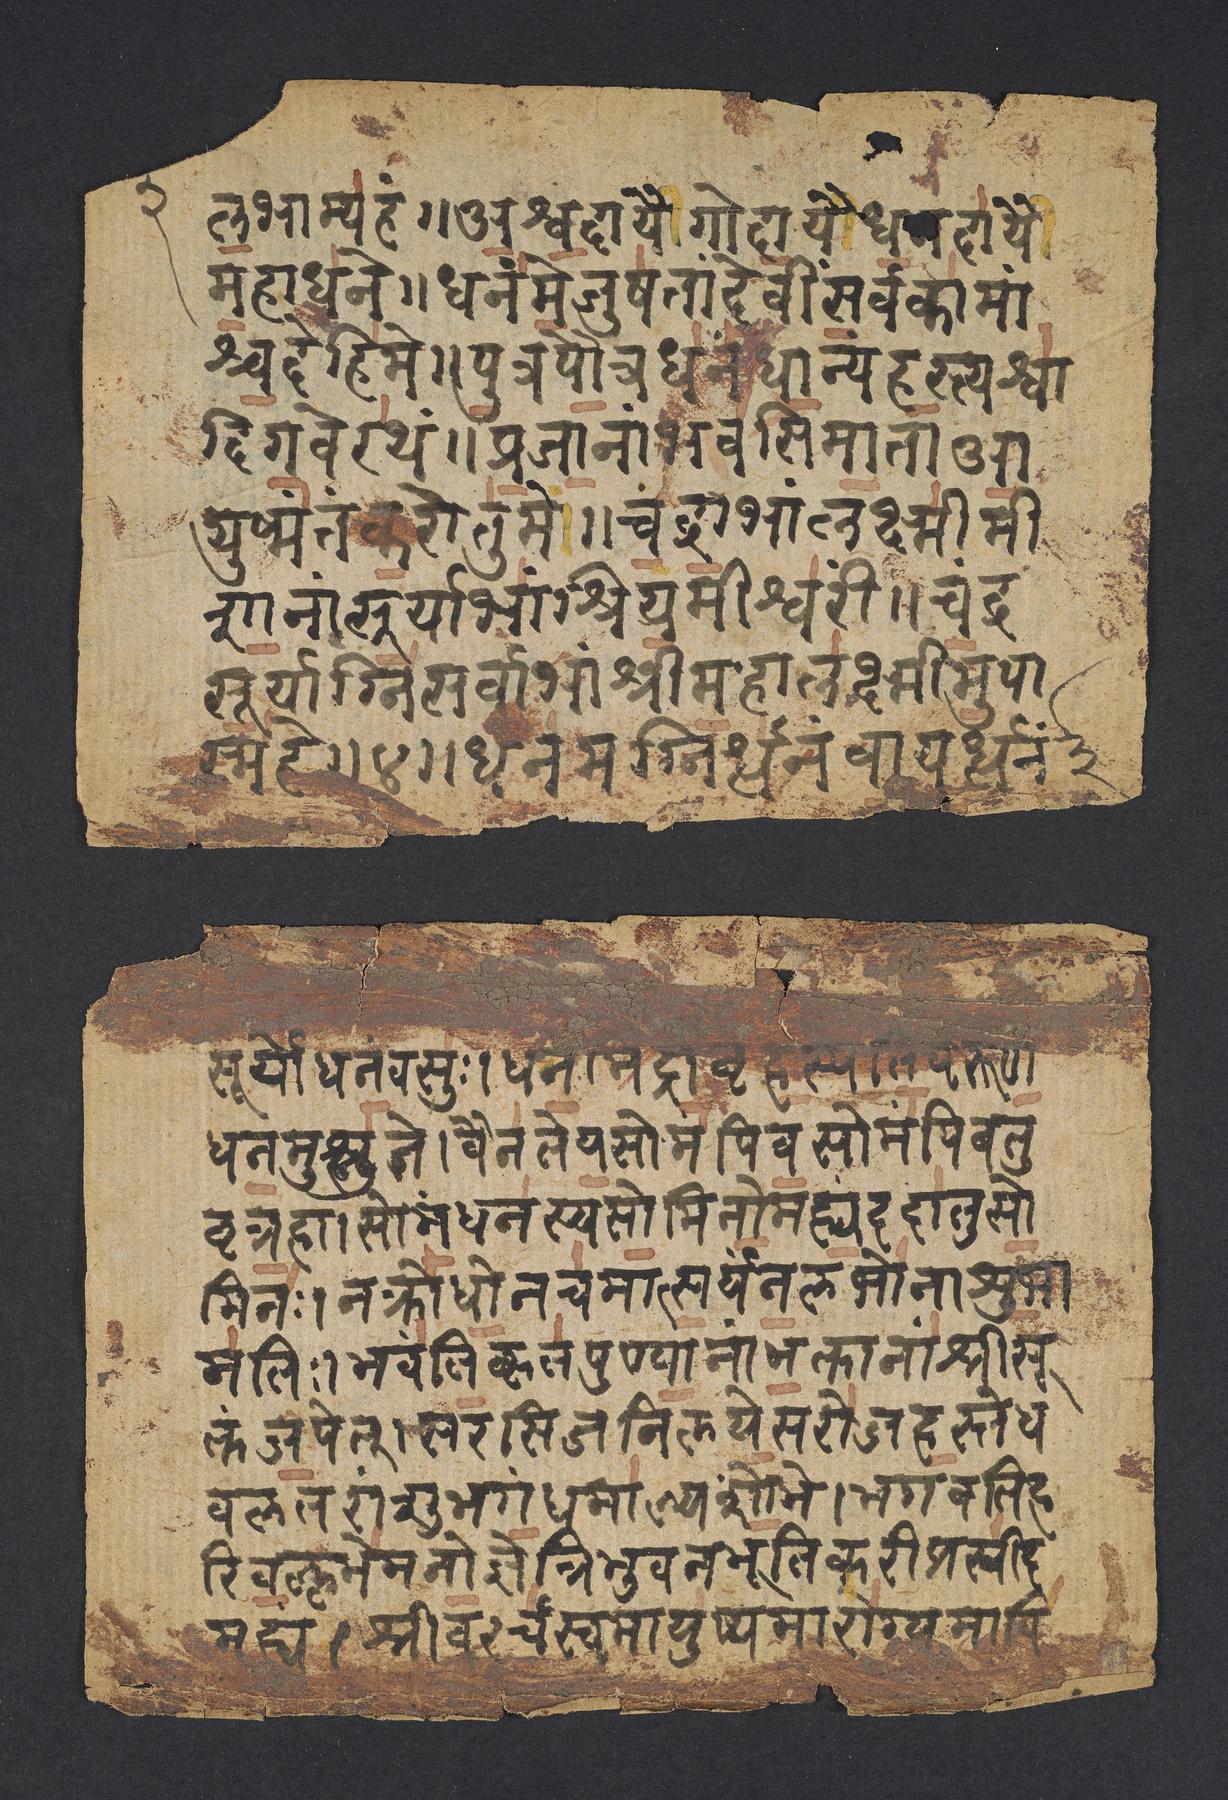 ३
लभाम्यहं ॥ अश्वदायै गोदायै धनदायै
महाधने ॥ धनं मे जुषतां देवीं सर्वकामां
श्चदेहिमे ॥ पुत्रपौत्रधनंधान्यं हस्त्यश्वा
दिगवेरथं ॥ प्रजानां भवसि माता आ
युष्मंतं करोतु मे ॥ चंद्राभां लक्ष्मीमी
शानां सूर्याभां श्रियमीश्वरीं ॥ चंद्र
सूर्याग्निसर्वाभां श्रीमहालक्ष्मीमुपा
स्महे ॥ ४ ॥ धनमग्निर्धनं वायर्धनं
३
सूर्यो धनं वसुः । धनमिंद्रो बृहस्पतिवरुण
धनमुश्नुते । वैनतेय सोमं पिव सोमं पिबतु
वृत्रहा । सोमं धनस्य सोमिनो मह्यं ददातु सो
मिनः । न क्रोधो न च मात्सर्यं न लोभो नाशुभा
मतिः । भवंति कृतपुण्यानां भक्तानां श्रीसू
क्तं जपेत् । सरसिजनिलये सरोजहस्ते ध
वलतरांशुभगंधमाल्यशोभे । भगवति ह
रिवल्लभे मनोज्ञे त्रिभुवनभूतिकरी प्रसीद
मह्यं । श्रीवर्चस्वमायुष्यमारोग्यमावि